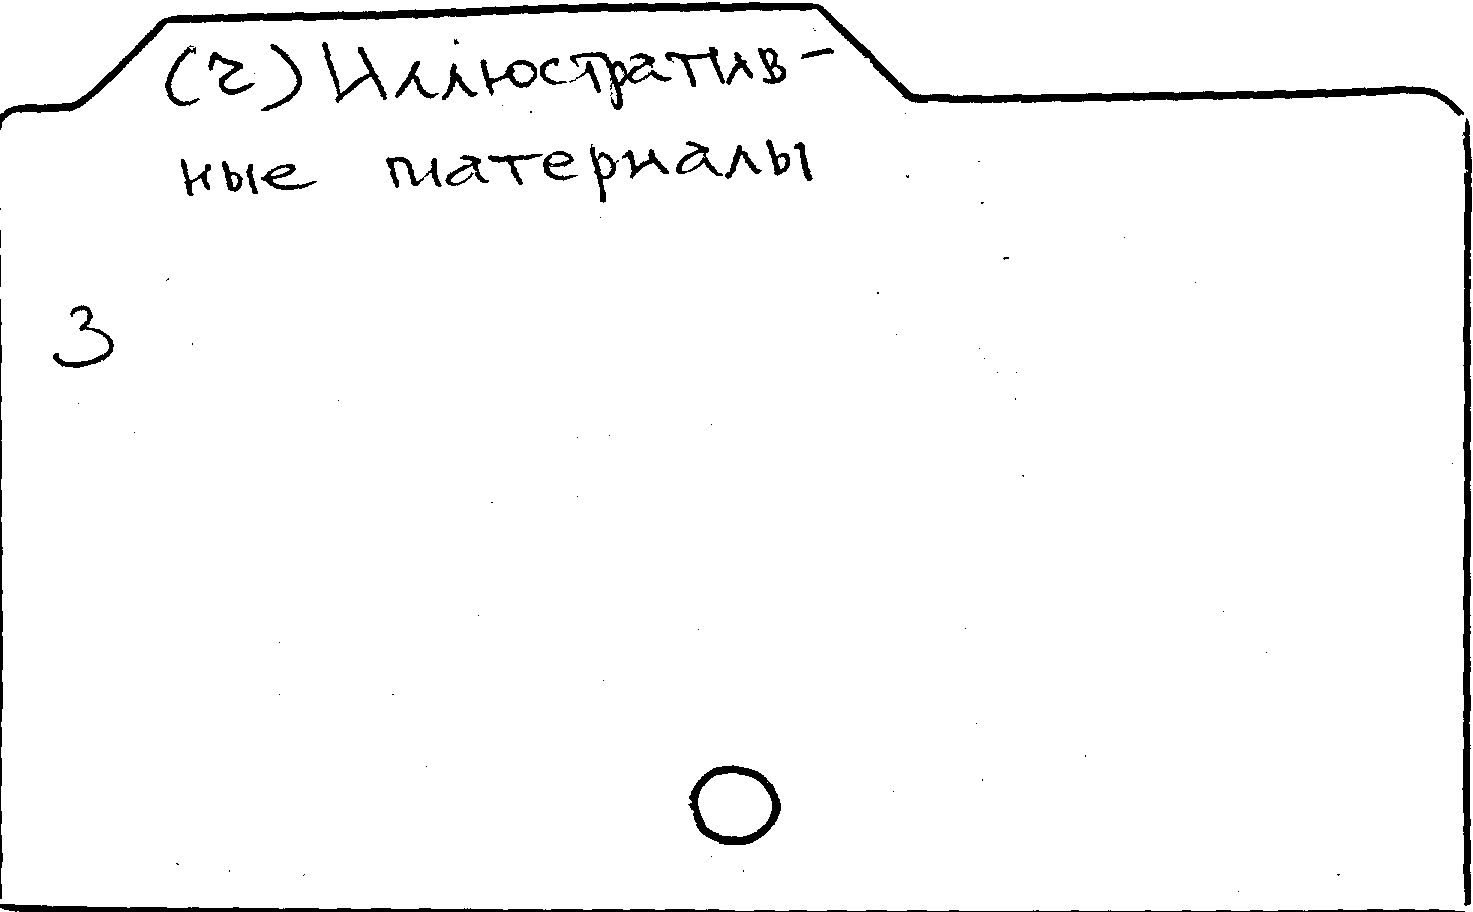 (г) Иллюстратив-
ные материалы
3